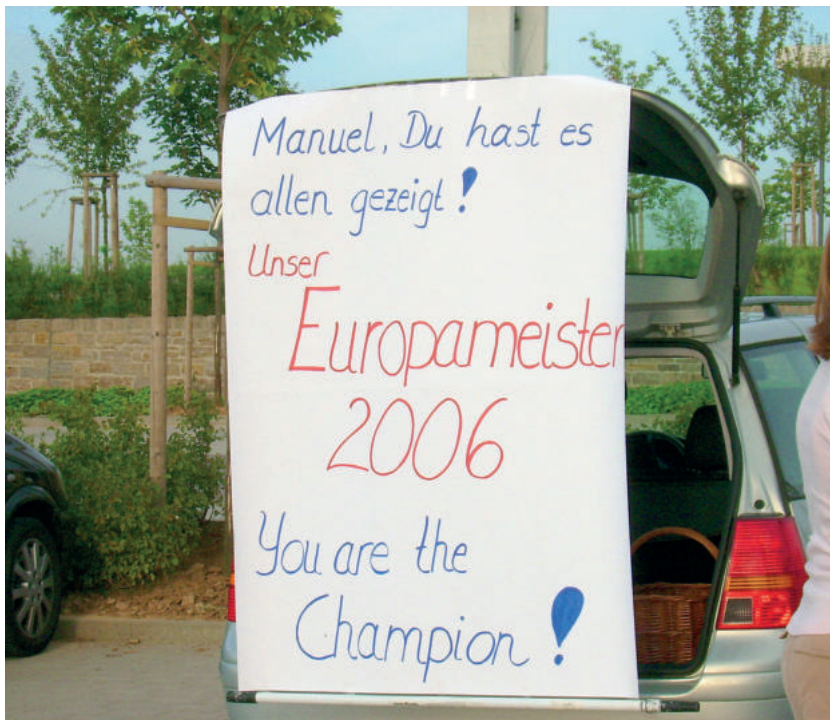 Manuel, Du hast es
allen gezeigt!
Unser
Europameister
2006
You are the
Champion!